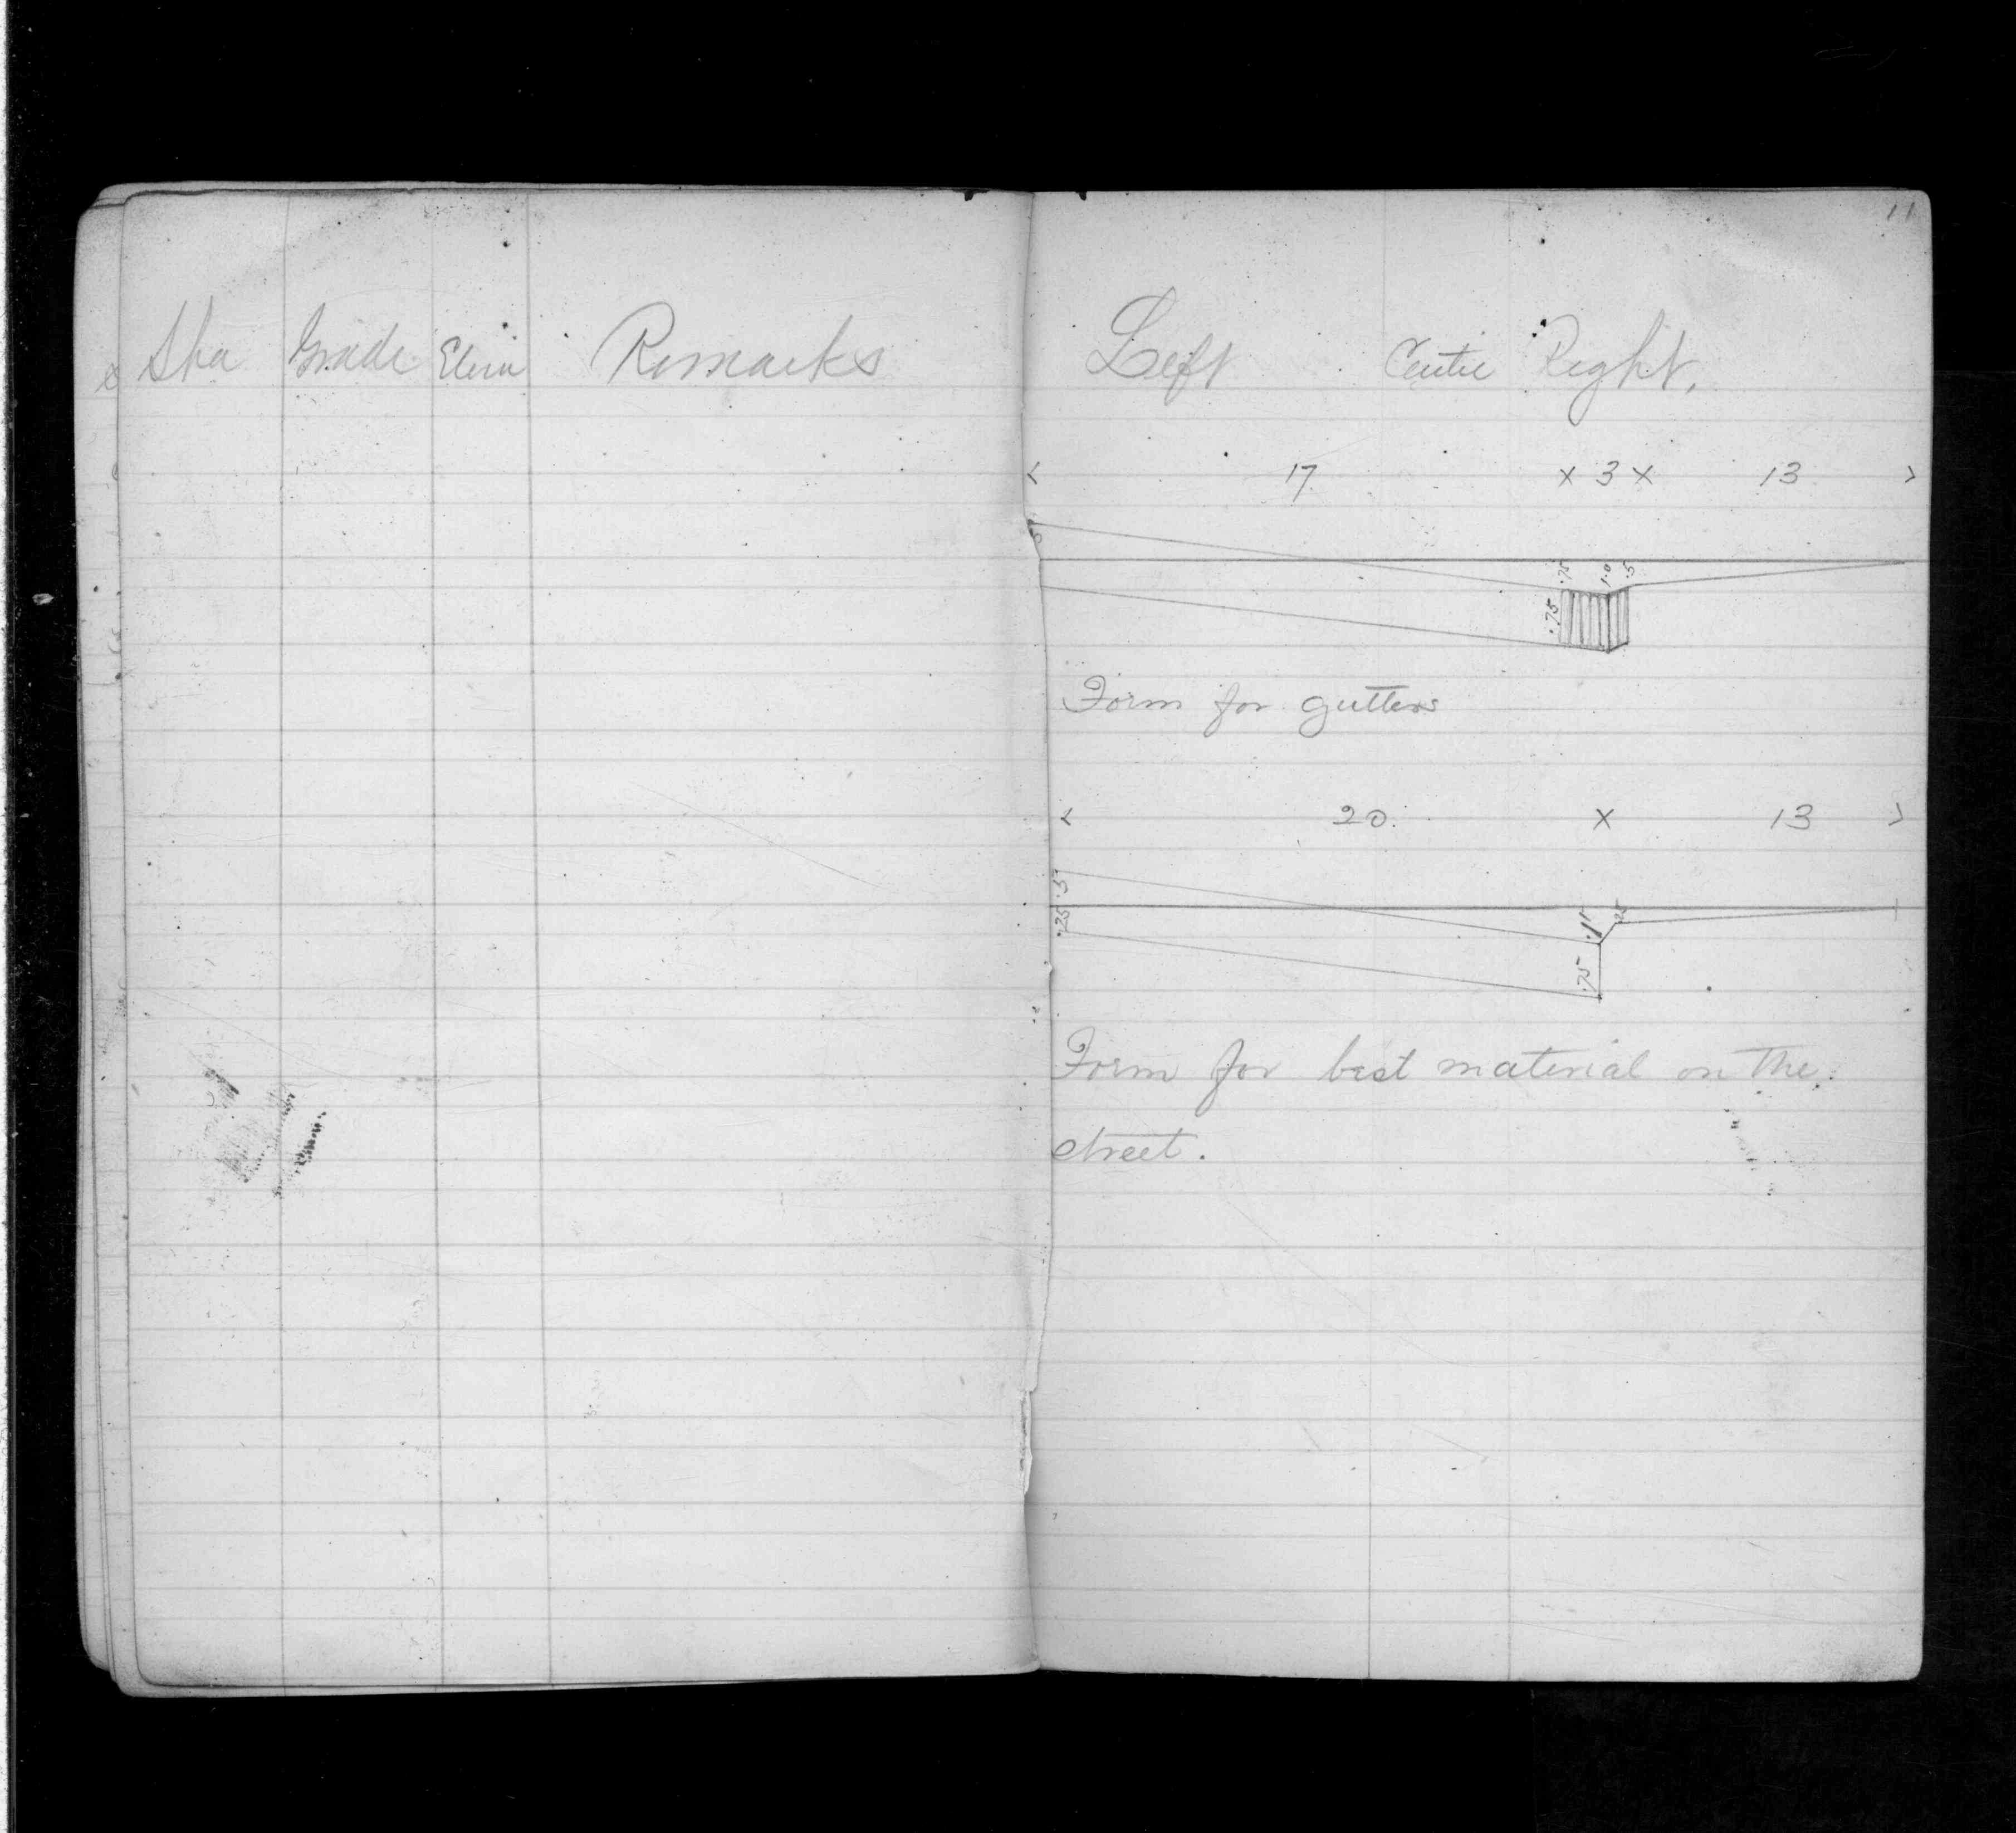 11
Sta Grade Elevn Remarks
Left Centre Right.
< 17 x 3 x 13 >
.5
.75 1.0 .5
.75
Form for gutters
< 20. x 13 >
.5
.25 .25
.75
Form for best material on the
street.